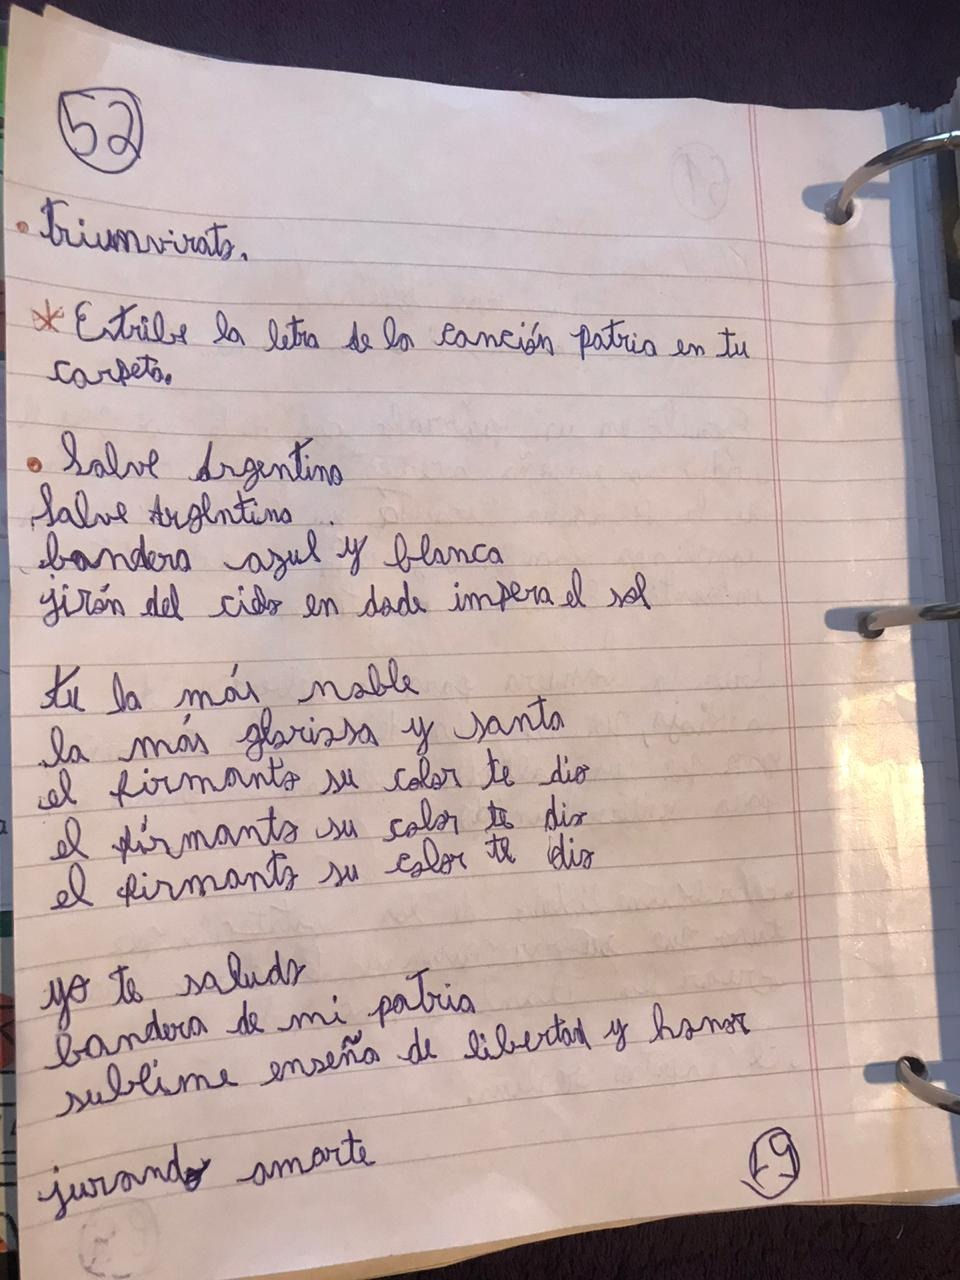 52
• triumvirato.
* Estribe la letra de la canción patria en tu
carpeta.
• Salve Argentina
Salve Argentina
bandera azul y blanca
jirón del cielo en dode impera el sol
tu la más noble
la más gloriosa y santa
el firmanto su color te dio
el firmanto su color te dio
el firmanto su color te dio
yo te saludo
bandera de mi patria
sublime enseña de libertad y honor
jurando amarte